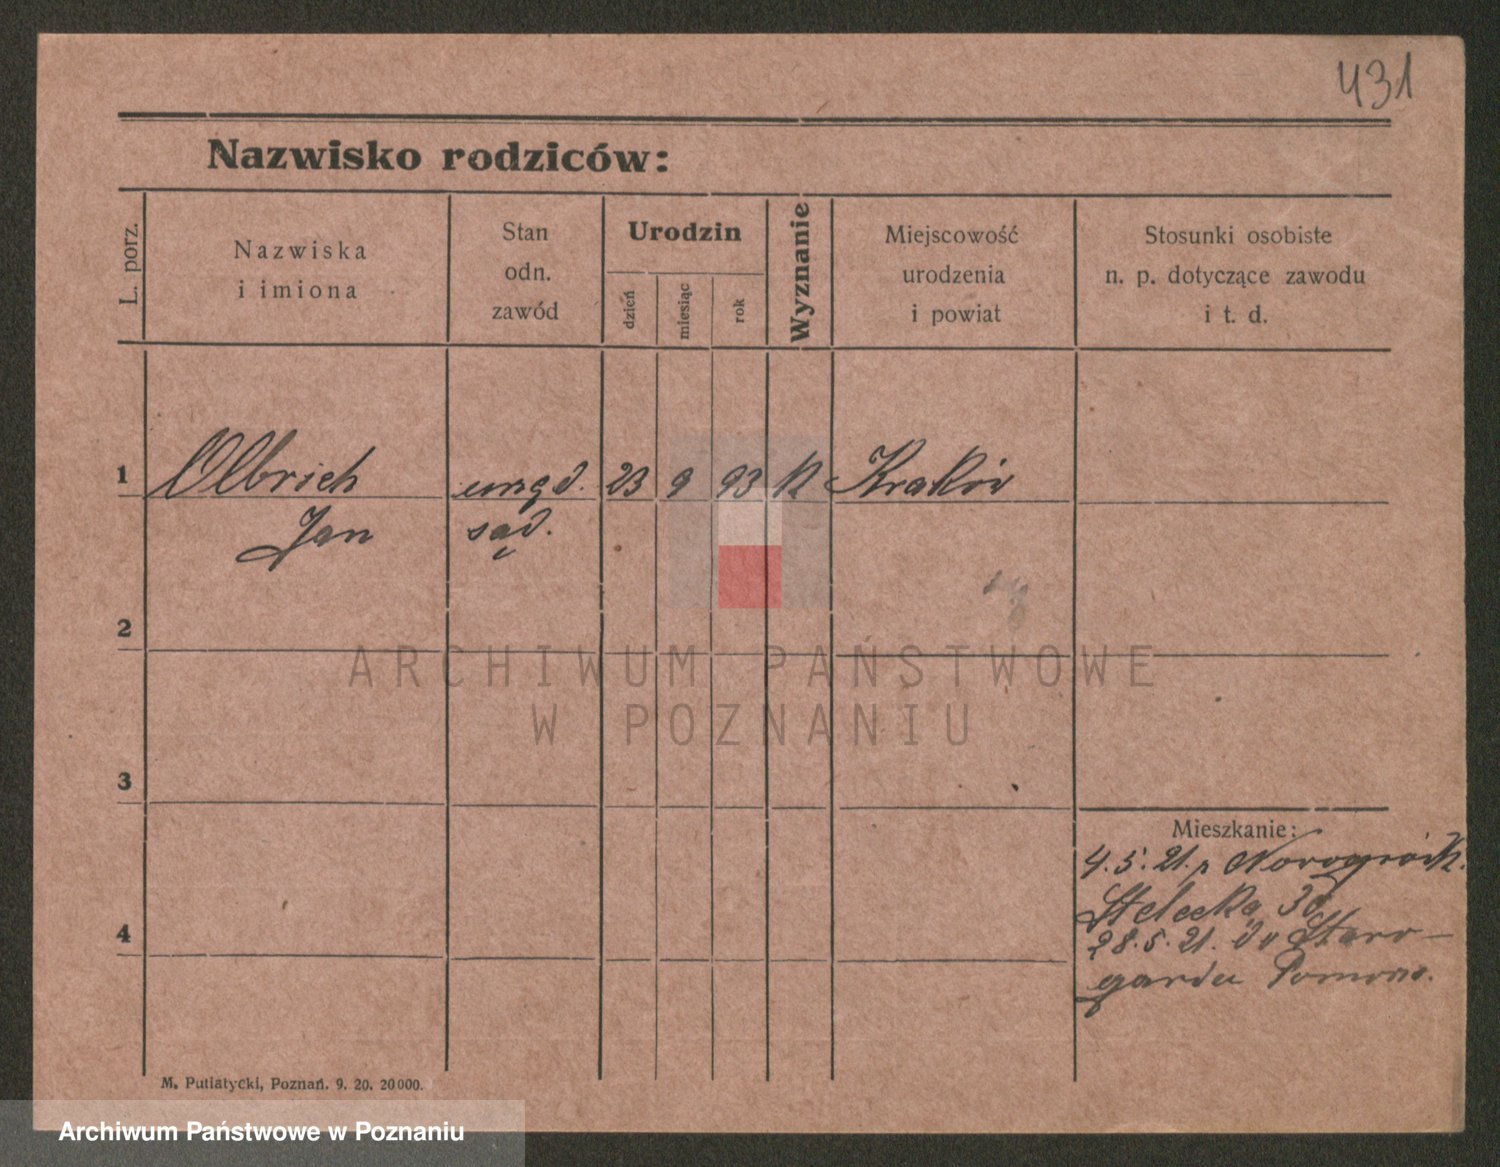 431
Nazwisko rodziców:
L. porz.
Nazwiska
i imiona
Stan
odn.
zawód
Urodzin
dzień
miesiąc
rok
Wyznanie
Miejscowość
urodzenia
i powiat
Stosunki osobiste
n. p. dotyczące zawodu
i t. d.
1 Olbrich urzęd. 23 9 93 K Kraków
Jan sąd.
2
3
4
Mieszkanie:
4.5.21. z
30
28.5.21. do Staro-
gardu Pomorze.
M. Putiatycki, Poznań. 9. 20. 20000.
ARCHIWUM PAŃSTWOWE
W POZNANIU
Archiwum Państwowe w Poznaniu